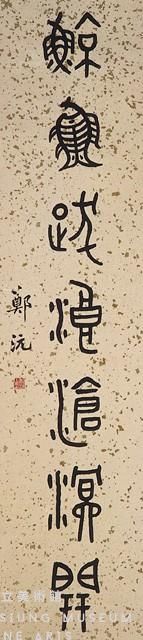 鯨魚跋浪滄溟開
鄭沅
立美術館
SIUNG MUSEUM
NE ARTS